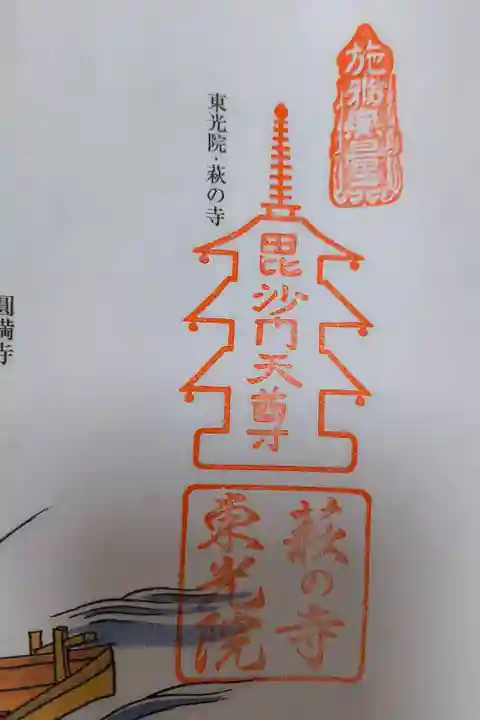 施福無量寿
東光院・萩の寺
毘沙門天尊
圓満寺
萩の寺
東光院